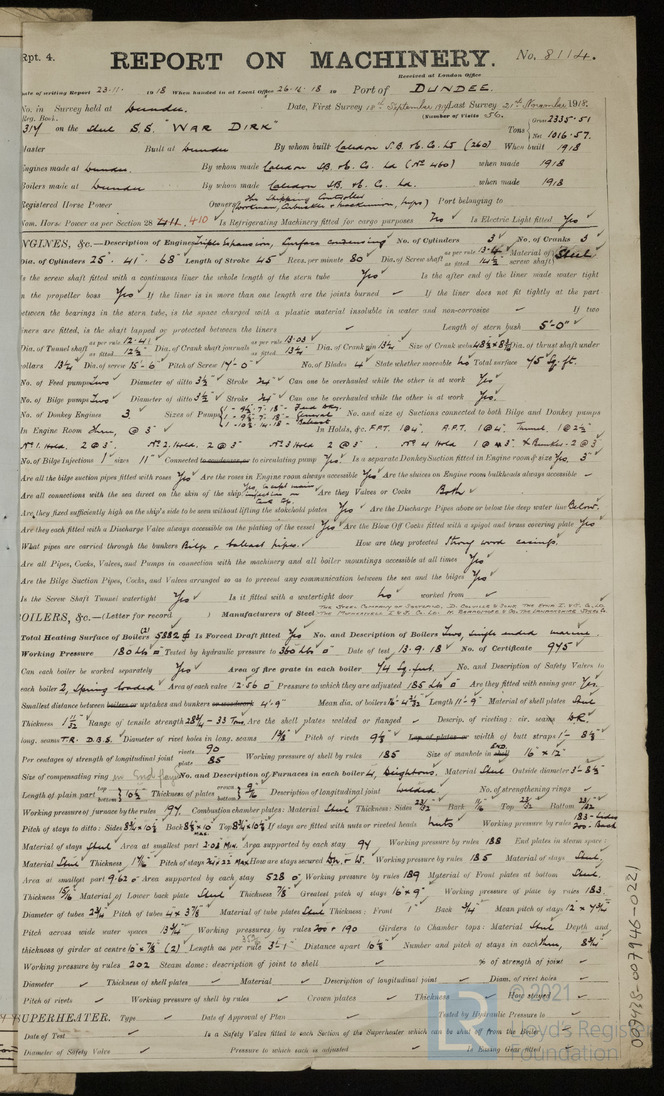 Rpt. 4. REPORT ON MACHINERY. No. 8114.
Received at London Office
Date of writing Report 23.11. 1918 When handed in at Local Office 26.12.18 Port of DUNDEE.
No. in Survey held at Dundee. Date, First Survey 10th September Last Survey 21st November 1918.
Reg. Book. (Number of Visits 56.
314 on the Steel S.S. "WAR DIRK" Tons Gross 2335.51 Net 1016.57.
Master Built at Dundee By whom built Caledon S.B. & E. Co. Ld (260) When built 1918
Engines made at Dundee. By whom made Caledon S.B. & E. Co. Ld (No 460) when made 1918
Boilers made at Dundee By whom made Caledon S.B. & E. Co. Ld. when made 1918
Registered Horse Power Owners The Shipping Controller Port belonging to
Nom. Horse Power as per Section 28 411. 410 Is Refrigerating Machinery fitted for cargo purposes No Is Electric Light fitted Yes
ENGINES, &c.—Description of Engines Triple Expansion, Surface condensing No. of Cylinders 3 No. of Cranks 3
Dia. of Cylinders 25". 41". 68" Length of Stroke 45" Revs. per minute 80 Dia. of Screw shaft as per rule 13.4 as fitted 14½ Material of screw shaft Steel
Is the screw shaft fitted with a continuous liner the whole length of the stern tube Yes Is the after end of the liner made water tight
in the propeller boss Yes If the liner is in more than one length are the joints burned If the liner does not fit tightly at the part
between the bearings in the stern tube, is the space charged with a plastic material insoluble in water and non-corrosive If two
liners are fitted, is the shaft lapped or protected between the liners Length of stern bush 5'-0"
Dia. of Tunnel shaft as per rule 12.41 as fitted 12½ Dia. of Crank shaft journals as per rule 13.03 as fitted 13¼ Dia. of Crank pin 13¼ Size of Crank webs Dia. of thrust shaft under
collars 13¼ Dia. of screw 15'-6" Pitch of Screw 17'-0" No. of Blades 4 State whether moveable No Total surface 75 Sq. ft.
No. of Feed pumps Two Diameter of ditto 3½ Stroke 24" Can one be overhauled while the other is at work Yes
No. of Bilge pumps Two Diameter of ditto 3½ Stroke 24" Can one be overhauled while the other is at work Yes.
No. of Donkey Engines 3 Sizes of Pumps No. and size of Suctions connected to both Bilge and Donkey pumps
In Engine Room Three, @ 3" In Holds, &c. F.P.T. 1@4". A.P.T. Tunnel, 1@2½"
No. 1. Hold. 2 @ 3". No. 2. Hold, 2 @ 3" No. 3 Hold 2 @ 3". No. 4 Hold
No. of Bilge Injections 1 sizes 11" Connected to condenser, or to circulating pump Yes. Is a separate Donkey Suction fitted in Engine room & size Yes. 3"
Are all the bilge suction pipes fitted with roses Yes Are the roses in Engine room always accessible Yes Are the sluices on Engine room bulkheads always accessible
Are all connections with the sea direct on the skin of the ship Are they Valves or Cocks Both
Are they fixed sufficiently high on the ship's side to be seen without lifting the stokehold plates Yes Are the Discharge Pipes above or below the deep water line Below.
Are they each fitted with a Discharge Valve always accessible on the plating of the vessel Yes Are the Blow Off Cocks fitted with a spigot and brass covering plate Yes
What pipes are carried through the bunkers Bilge & ballast pipes. How are they protected Strong wood casings.
Are all Pipes, Cocks, Valves, and Pumps in connection with the machinery and all boiler mountings accessible at all times Yes
Are the Bilge Suction Pipes, Cocks, and Valves arranged so as to prevent any communication between the sea and the bilges Yes
Is the Screw Shaft Tunnel watertight Yes Is it fitted with a watertight door No worked from
BOILERS, &c.—(Letter for record ) Manufacturers of Steel
Total Heating Surface of Boilers (2) 5882 Is Forced Draft fitted Yes No. and Description of Boilers Two, Single ended marine.
Working Pressure 180 lbs Tested by hydraulic pressure to 360 lbs Date of test 13.9.18 No. of Certificate 975
Can each boiler be worked separately Yes Area of fire grate in each boiler 74 Sq. feet. No. and Description of Safety Valves to
each boiler 2, Spring loaded Area of each valve 12.56 Pressure to which they are adjusted 185 lbs Are they fitted with easing gear Yes.
Smallest distance between boilers or uptakes and bunkers or woodwork 4'-9" Mean dia. of boilers Length 11'-9" Material of shell plates Steel
Thickness 1 11/32 Range of tensile strength 28¾ - 33 Tons Are the shell plates welded or flanged Descrip. of riveting: cir. seams D.R.
long. seams T.R. D.B.S. Diameter of rivet holes in long. seams 1⅜ Pitch of rivets 9½ Lap of plates or width of butt straps 1'- 8½
Per centages of strength of longitudinal joint rivets 90 plate 85 Working pressure of shell by rules 185 Size of manhole in shell END 16" x 12"
Size of compensating ring No. and Description of Furnaces in each boiler 4, Deightons. Material Steel Outside diameter 3'-8½
Length of plain part top bottom Thickness of plates crown bottom 9/16 Description of longitudinal joint Welded No. of strengthening rings
Working pressure of furnace by the rules 194. Combustion chamber plates: Material Steel Thickness: Sides 23/32 Back 11/16 Top 23/32 Bottom 23/32
Pitch of stays to ditto: Sides Back Top If stays are fitted with nuts or riveted heads Nuts Working pressure by rules 183
Material of stays Steel Area at smallest part 2.03 Min. Area supported by each stay 94 Working pressure by rules 188 End plates in steam space:
Material Steel Thickness Pitch of stays How are stays secured D.N. & W. Working pressure by rules 185 Material of stays Steel.
Area at smallest part 9.62 Area supported by each stay 528 Working pressure by rules 189 Material of Front plates at bottom Steel.
Thickness 15/16 Material of Lower back plate Steel Thickness ⅞ Greatest pitch of stays 16" x 9" Working pressure of plate by rules 183.
Diameter of tubes 2¾ Pitch of tubes 4 x 3⅞ Material of tube plates Steel Thickness: Front 1" Back ¾ Mean pitch of stays
Pitch across wide water spaces 13¾ Working pressures by rules 200 & 190 Girders to Chamber tops: Material Steel Depth and
thickness of girder at centre 10" x ⅞ (2) Length as per rule Distance apart 10½ Number and pitch of stays in each Three, 8¾
Working pressure by rules 202 Steam dome: description of joint to shell % of strength of joint
Diameter Thickness of shell plates Material Description of longitudinal joint Diam. of rivet holes
Pitch of rivets Working pressure of shell by rules Crown plates Thickness How stayed
SUPERHEATER. Type Date of Approval of Plan Tested by Hydraulic Pressure to
Date of Test Is a Safety Valve fitted to each Section of the Superheater which can be shut off from the Boiler
Diameter of Safety Valve Pressure to which each is adjusted Is Easing Gear fitted
© 2021
Lloyd's Register
Foundation
009438-007946-0221